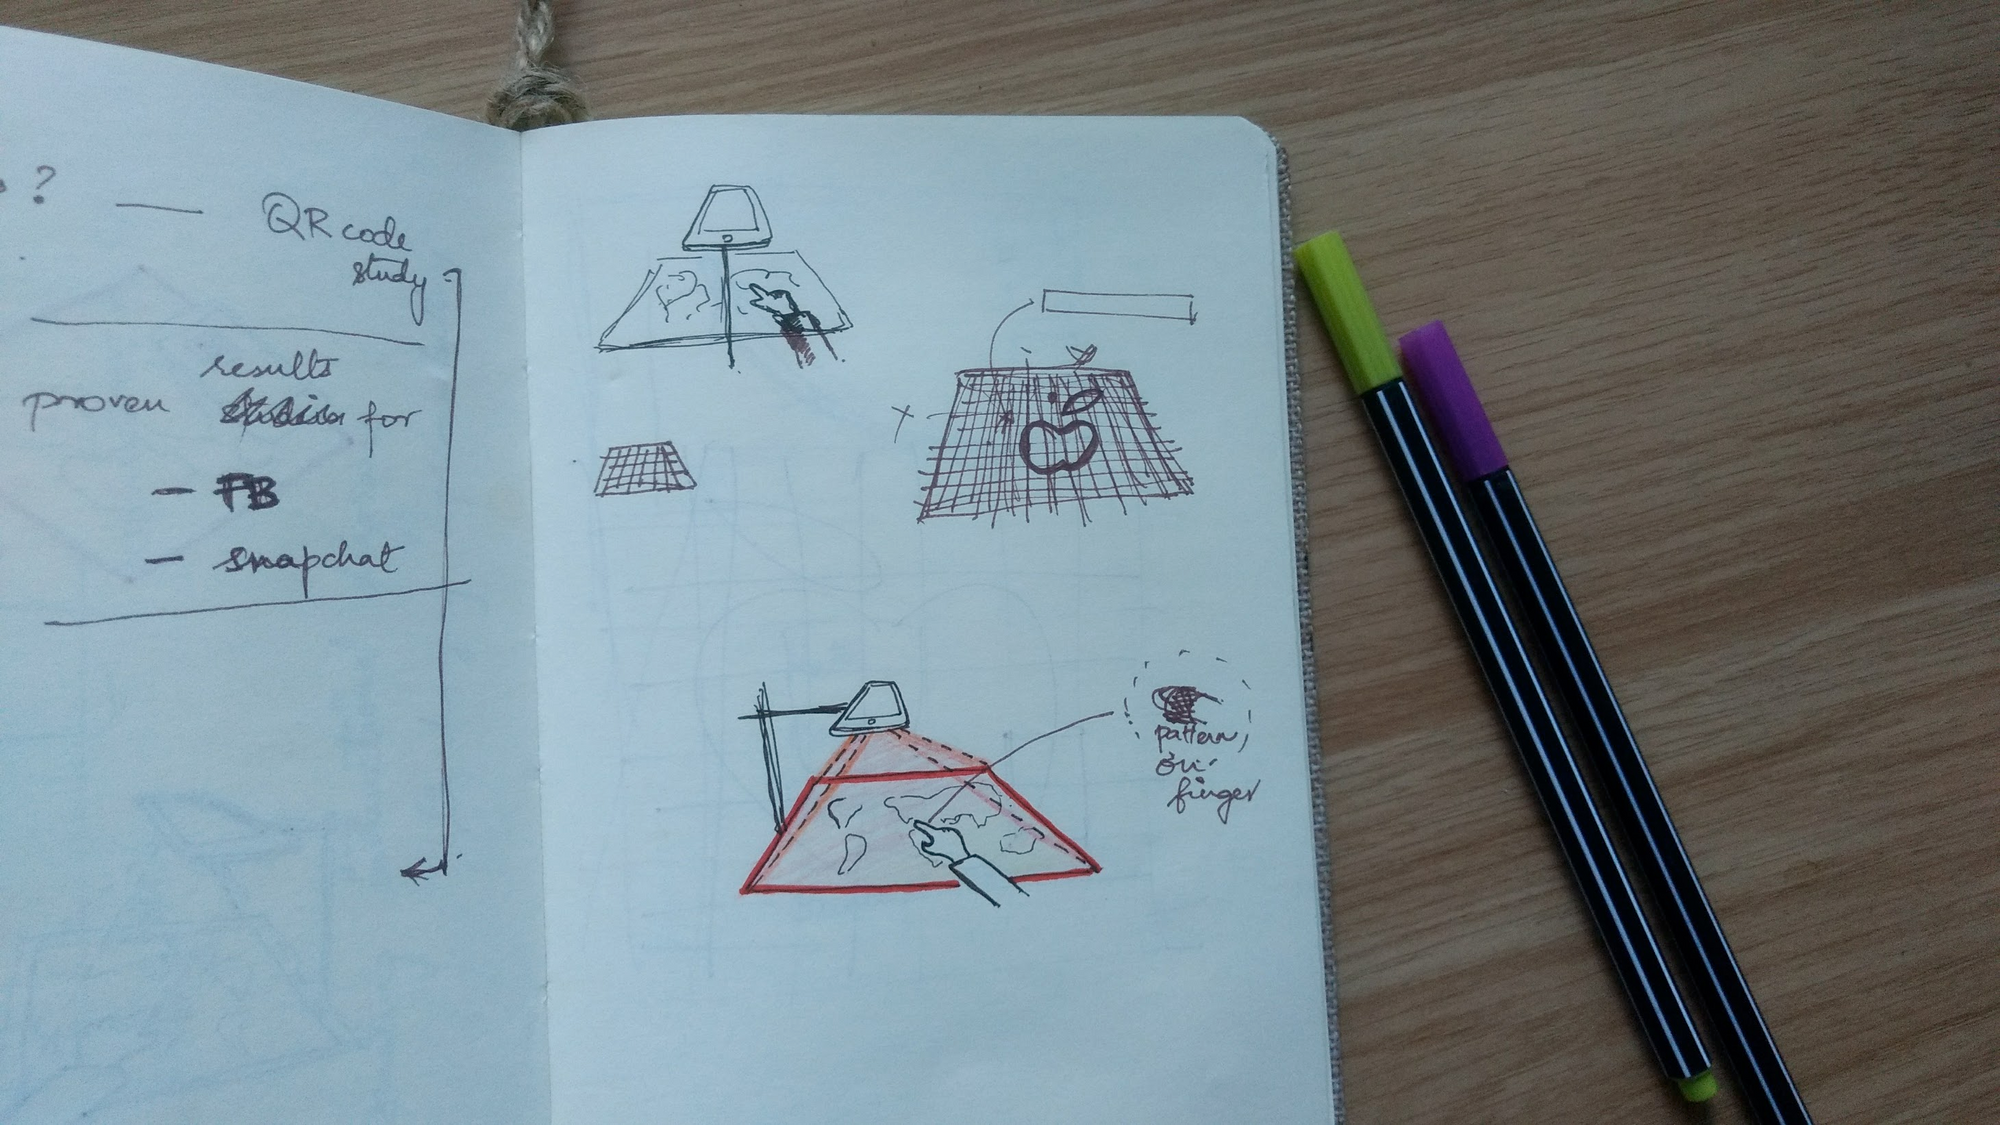 ?
— QR code
study
results
proven for
— FB
— snapchat
X
pattern,
on-
finger